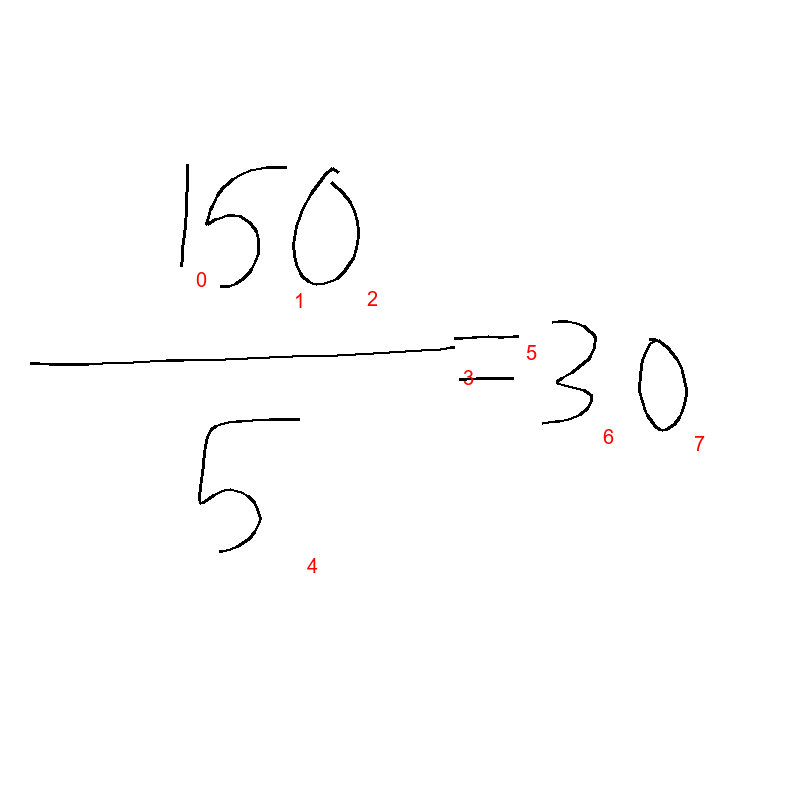 150
5
=30
0
1
2
3
4
5
6
7